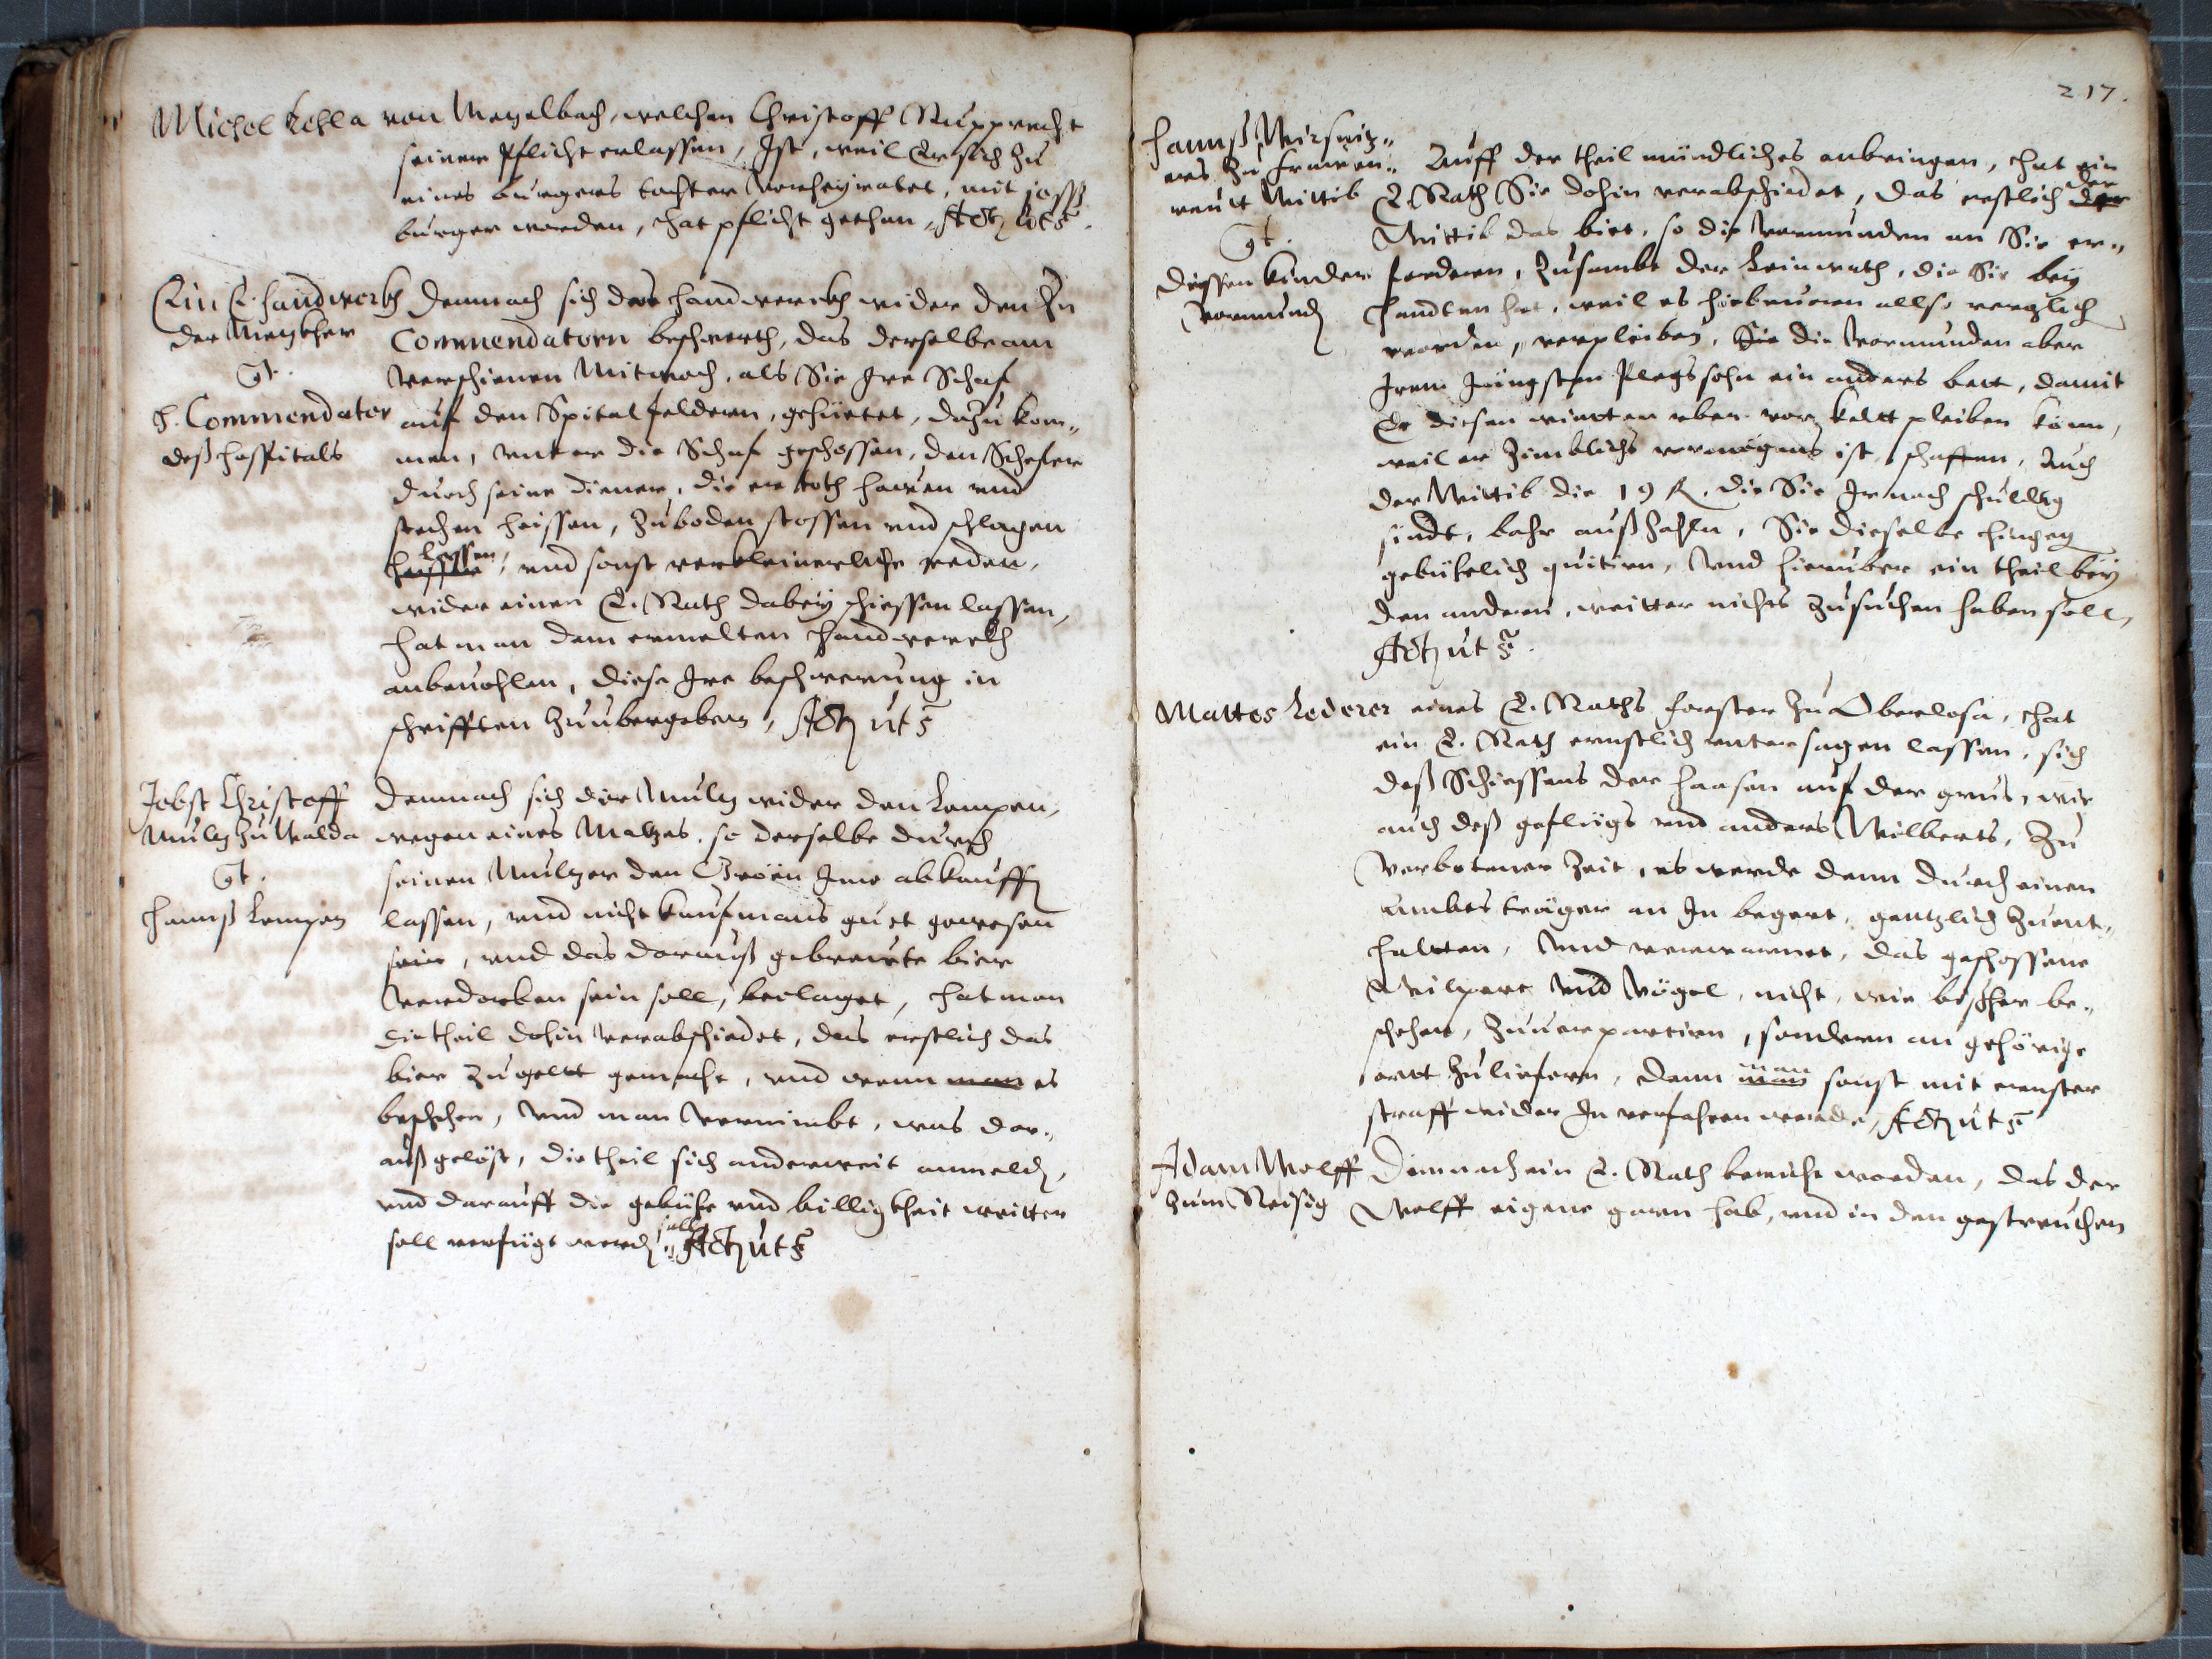 Michel Kehla von Megelbach, welchen Christoff Rupprecht
seiner Pflicht erlassen, Ist, weil Er sich zu
eines burgers tochter verheyratet, mit
burger worden, hat pflicht gethan, Actum ut s.
Ein E. handwerkh
der Metzkher
Ct.
H. Commendator
deß hospitals
Demnach sich das handwerckh wider den Hn
Commendatorn beschwerth, das derselbe am
verschienen Mitwoch, als Sie Ire Schaf
auf den Spital feldern, gehüetet, dazu kom„
men, unter die Schaf geschossen, den Schefer
durch seine diener, die er todt hauen und
stechen heissen, zu boden stossen und schlagen
lassen, und sonst verkleinerliche reden,
wider einen E. Rath dabey schiessen lassen,
hat man dem ermelten handwerckh
anbeuohlen, diese Ire beschwerung in
schrifften zuubergeben, Actum ut s
Jobst Christoff
Mulz zu Walda
Ct.
Hannß Lempen
Demnach sich der Mulz wider den Lempen,
wegen eines Malzes, so derselbe durch
seinen Mulzer den Ime abkauffen
lassen, und nicht kaufmans guet gewesen
sein, und das darauß gebreute bier
verdorben sein soll, beclaget, hat man
die theil dohin verabschiedet, das erstlich das
bier zu geltt gemacht, und wenn man es
beschehen, und man vernimbt, was dar„
auß gelöst, die theil sich anderweit anmelden,
und darauff die gebühr und billigkheit weitter
soll verfügt werden, Actum ut s
217.
Hannß
Wittib
Ct.
dessen kinder
Vormunden
Auff der theil mündliches anbringen, hat ein
E. Rath Sie dohin verabschiedet, das erstlich der
Wittib das bet, so die Vormunden an Sie er„
fordern, zusambt der Leinwath, die Sie bey
handten hat, weil es hiebeuorn also verglich
worden, verpleiben, Sie die Vormunden aber
Irem Jüngsten Plegssohn ein anders bett, damit
Er diesen wintter uber vor keltt pleiben könn,
weil er zimblichs vermögens ist, schaffen, Auch
der Wittib die 19 fl. die Sie Ir noch schuldig
sindt, bahr außzahln, Sie dieselbe hingeg
gebührlich quitirn, und hierüber ein theil bey
den andern, weitter nichts zusuchen haben soll,
Actum ut s.
Mattes Lederer eines E. Raths forster zu Oberlosa, hat
ein E. Rath ernstlich untersagen lassen, sich
deß Schiessens der haasen auf der, wie
auch deß geflügs und anders Wilberts, zu
verbotener zeit, es werde denn durch einen
ambts träger an In begert, gentzlich zuent„
haltten, und verwarnet, das geschossene
Wilpret und Vögel, nicht, wie bißher be„
schehen, zuuerpartirn, sondern an gehörige
ortt zuliefern, dann man sonst mit ernster
straff wider In verfahren werde, Actum ut s
Adam Wolff
zum Reisig
Demnach ein E. Rath bericht worden, das der
Wolff eigene garn hab, und in den gestreuchen